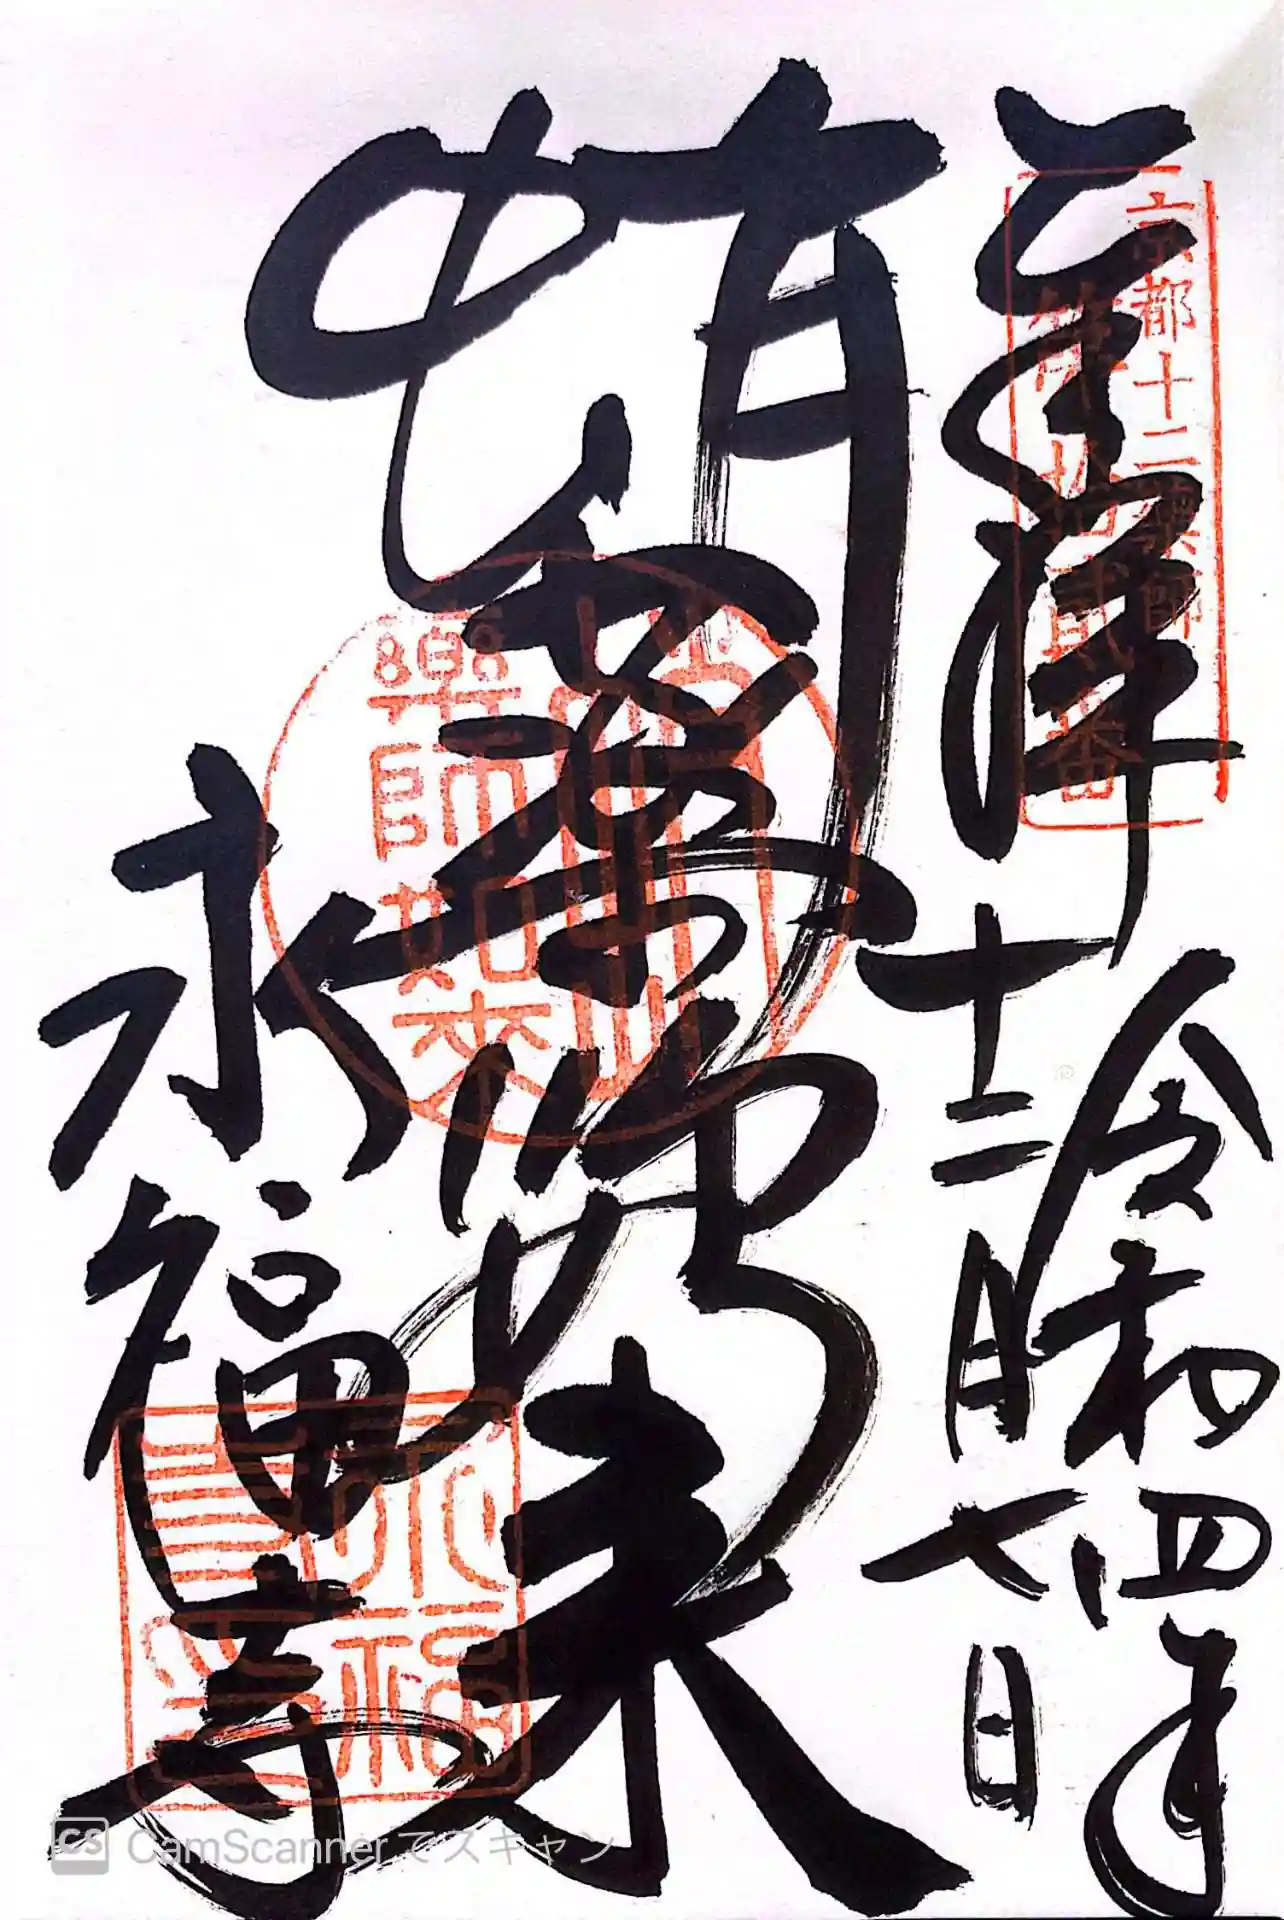 奉拝
令和四年
十二月七日
京都十二薬師
第拾貳番
蛸薬師如来
藥師如來
永福寺
永福
寺印
CS CamScanner でスキャン